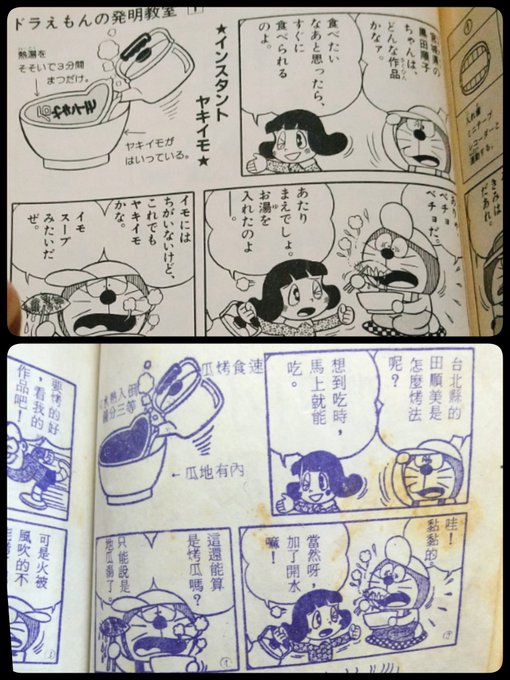 ドラえもんの発明教室
ちゃんは、
どんな作品
かなァ。
食べたい
なあと思ったら、
すぐに
食べられる
のよ。
★インスタント
ヤキイモ★
熱湯を
そそいで3分間
まつだけ。
ヤキイモが
はいっている。
ベチョベチョだ。
あたり
まえでしょ。
お湯を
入れたのよ
イモには
ちがいないけど、
これでも
ヤキイモ
かな。
イモ
スープ
みたいだ
ぜ。
入れ歯
ミニテープ
レコーダーと
きみは
だあれ。
台北縣的
田順美是
怎麼烤法
呢?
想到吃時，
馬上就能
吃。
速食烤瓜
倒入熱水
等三分
內有地瓜
哇!
黏黏的。
當然呀，
加了開水
嘛!
這還能算
是烤瓜嗎?
只能說是
地瓜湯了
要烤的好
，看我的
作品吧!
可是火被
風吹的不